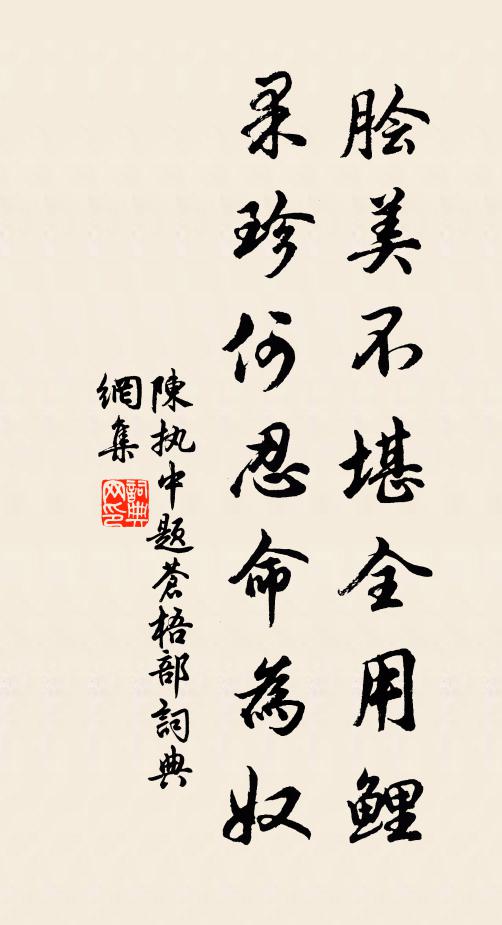 脍美不堪全用鲤
果珍何忍命為奴
陳执中题蒼梧部詞典
網集
詞典
网印